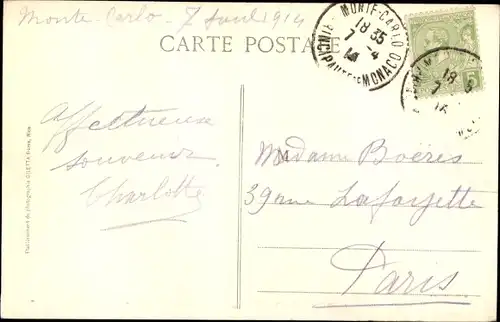 Monte-Carlo - 7 avril 1914
CARTE POSTALE
MONTE-CARLO
18 35
7 -4
14
PRINCIPAUTÉ DE MONACO
5
18 3
7
14
Affectueux
souvenir
Charlotte
Madame Boëres
39 rue Lafayette
Paris
Etablissement de photographie GILETTA frères, Nice